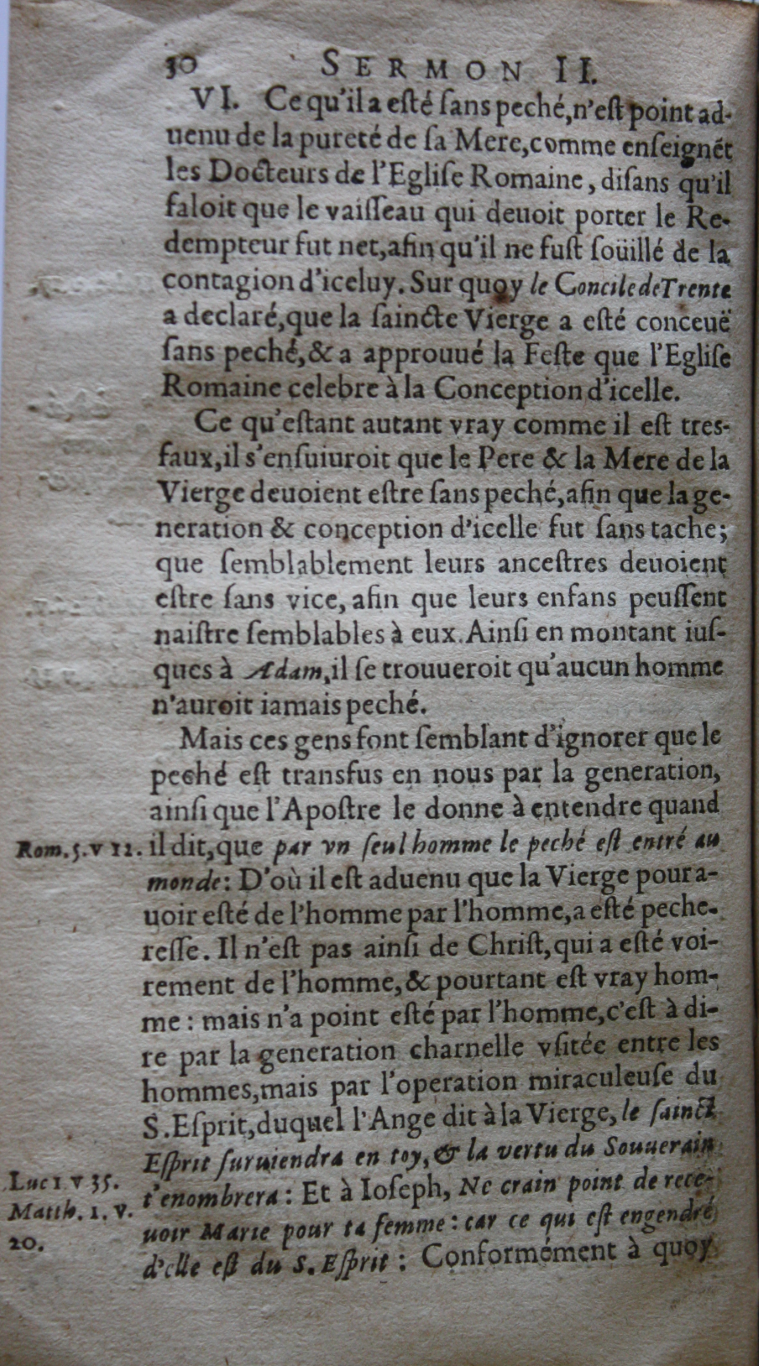 30 SERMON II.
VI. Ce qu'il a eſté ſans peché, n'eſt point ad-
uenu de la pureté de ſa Mere, comme enſeignẽt
les Docteurs de l'Egliſe Romaine, diſans qu'il
faloit que le vaiſſeau qui deuoit porter le Re-
dempteur fut net, afin qu'il ne fuſt ſoüillé de la
contagion d'iceluy. Sur quoy le Concile de Trente
a declaré, que la ſaincte Vierge a eſté conceuë
ſans peché, & a approuué la Feſte que l'Egliſe
Romaine celebre à la Conception d'icelle.
Ce qu'eſtant autant vray comme il eſt tres-
faux, il s'enſuiuroit que le Pere & la Mere de la
Vierge deuoient eſtre ſans peché, afin que la ge-
neration & conception d'icelle fut ſans tache;
que ſemblablement leurs anceſtres deuoient
eſtre ſans vice, afin que leurs enfans peuſſent
naiſtre ſemblables à eux. Ainſi en montant iuſ-
ques à Adam, il ſe trouueroit qu'aucun homme
n'auroit iamais peché.
Mais ces gens font ſemblant d'ignorer que le
peché eſt transfus en nous par la generation,
ainſi que l'Apoſtre le donne à entendre quand
Rom. 5. v 12. il dit, que par vn ſeul homme le peché eſt entré au
monde: D'où il eſt aduenu que la Vierge pour a-
uoir eſté de l'homme par l'homme, a eſté peche-
reſſe. Il n'eſt pas ainſi de Chriſt, qui a eſté voi-
rement de l'homme, & pourtant eſt vray hom-
me: mais n'a point eſté par l'homme, c'eſt à di-
re par la generation charnelle vſitée entre les
hommes, mais par l'operation miraculeuſe du
S. Eſprit, duquel l'Ange dit à la Vierge, le ſainct
Eſprit ſuruiendra en toy, & la vertu du Souuerain
Luc 1 v 35. t'enombrera: Et à Ioſeph, Ne crain point de rece-
Matth. 1. v. uoir Marie pour ta femme: car ce qui eſt engendré
20. d'elle eſt du S. Eſprit: Conformément à quoy